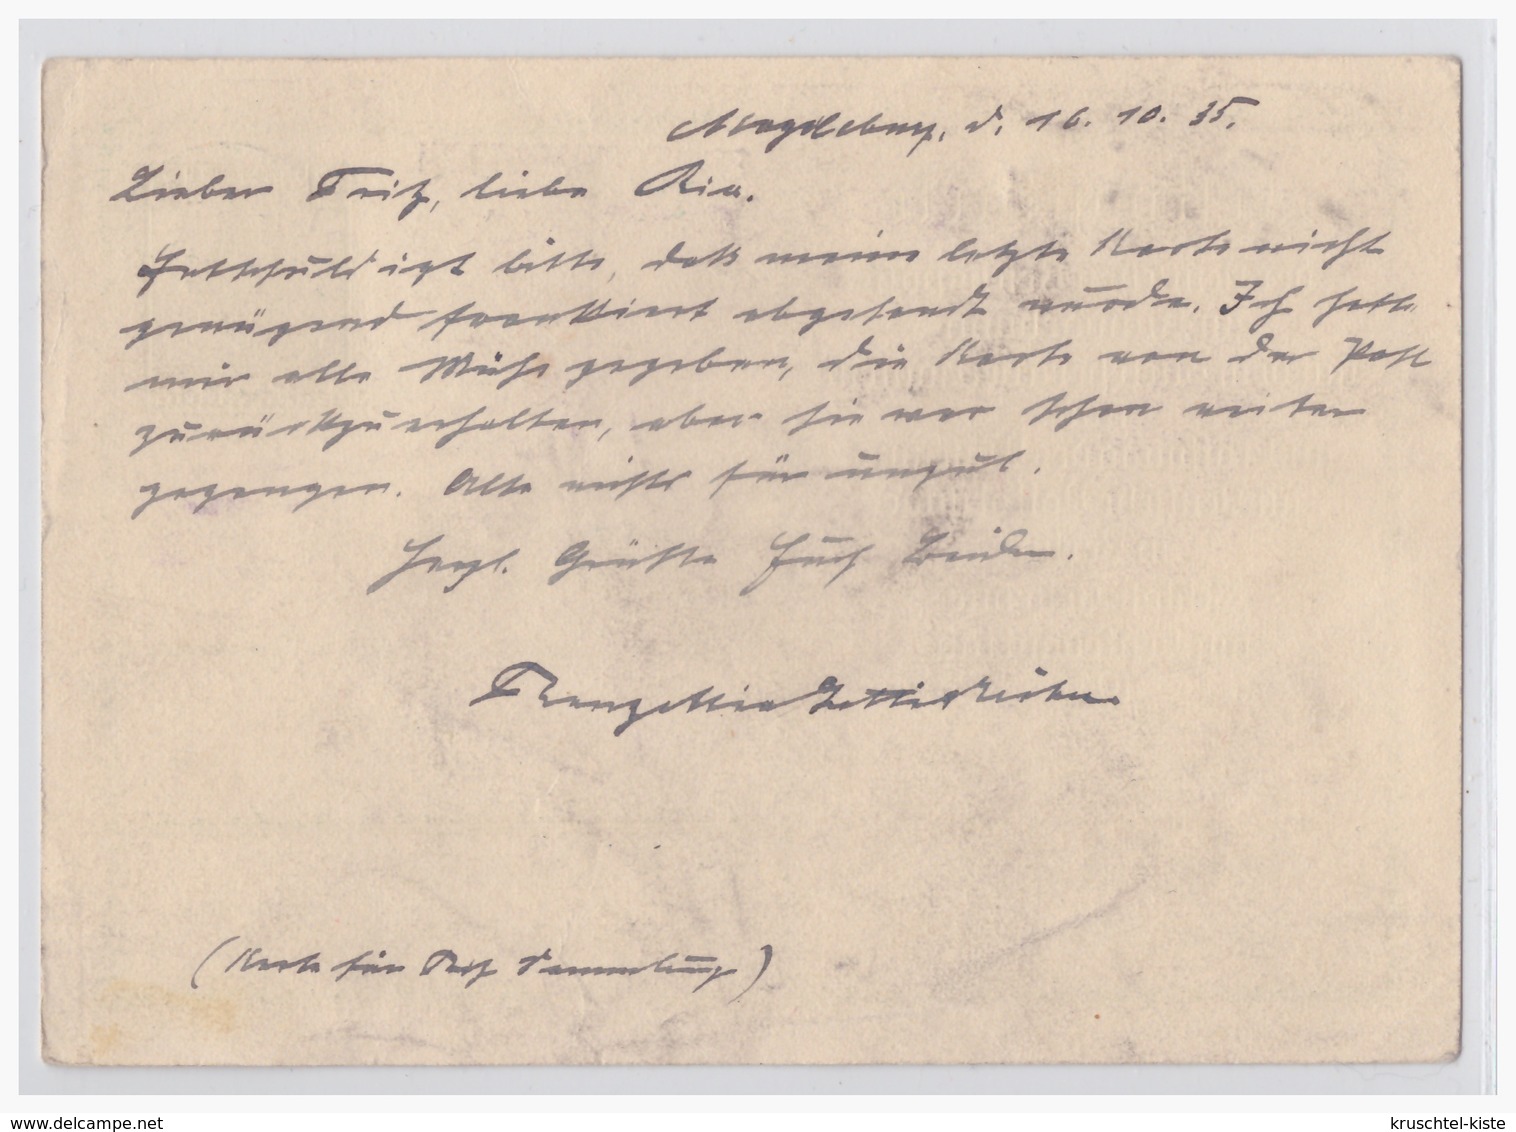 Magdeburg, d. 16. 10. 35.
Lieber Fritz, liebe Ria.
Entschuldigt bitte, daß meine letzte Karte nicht
genügend frankiert abgesandt wurde. Ich hatte
mir alle Mühe gegeben, die Karte von der Post
zurückzuerhalten, aber sie war schon weiter
gegangen. Also nichts für ungut.
Herzl. Grüße Euch Beiden.
(Karte für Fritz Sammlung)
www.delcampe.net
kruschtel-kiste